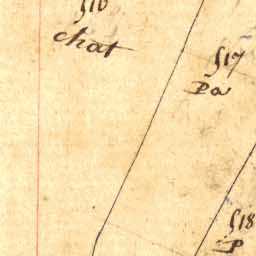 516
chat
517
Pa
518
P